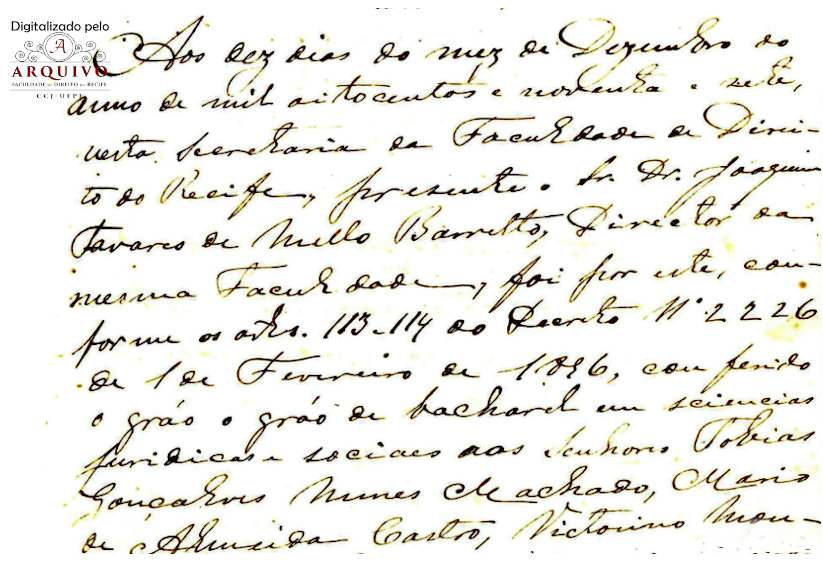 Digitalizado pelo
A
ARQUIVO
FACULDADE DE DIREITO DO RECIFE
CCJ-UFPE
Aos dez dias do mez de Dezembro do
anno de mil oitocentos e noventa e sete,
nesta Secretaria da Faculdade de Direi-
to do Recife, presente o Sr. Dr. Joaquim
Tavares de Mello Barretto, Director da
mesma Faculdade, foi por este, con-
forme os arts. 113-114 do Decreto Nº 2226
de 1 de Fevereiro de 1896, con ferido
o gráo o gráo de bacharel em sciencias
juridicas e sociaes aos Senhores Tobias
Gonçalves Nunes Machado, Mario
de Almeida Castro, Victorino Mon-